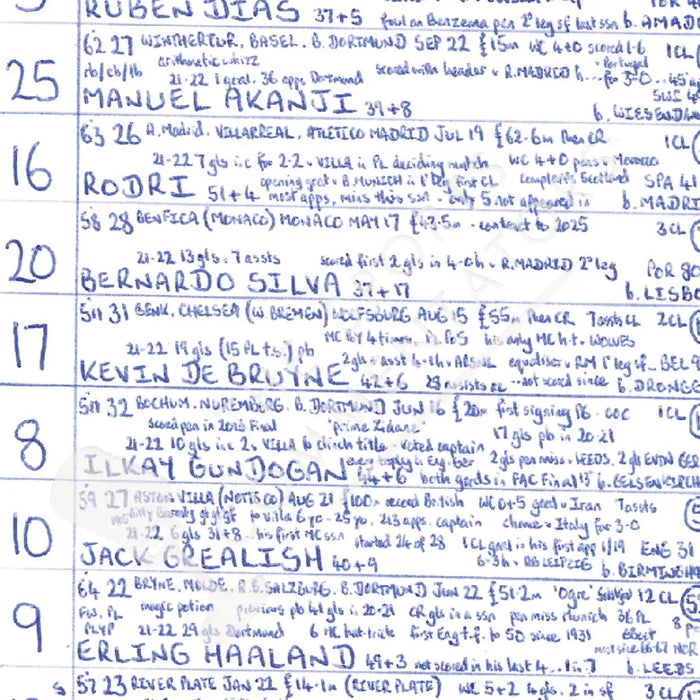 RUBEN DIAS 37+5 foul on Benzema pen 2° leg sf last ssn b. AMAD
62 27 WINTHERTUR, BASEL, B. DORTMUND SEP 22 £15m WC 4+0 scored 1-6 1CL
rb/cb/lb arithmetic whizz Portugal
25 21-22 1 goal. 36 apps Dortmund scored with header v R.MADRID h... for 3-0...45
MANUEL AKANJI 39+8 b. WIESENDAN
63 26 A.Madrid. VILLARREAL, ATLETICO MADRID JUL 19 £62.6m Then CR 1CL
16 21-22 7 gls i.c for 2-2 v VILLA in PL deciding match WC 4+0 pens v Morocco
opening goal v B.MUNICH in 1° leg first CL complaints Scotland SPA 41
RODRI 51+4 most apps, mins this ssn - only 5 not appeared in b. MADRI
58 28 BENFICA (MONACO) MONACO MAY 17 £43.5m - contract to 2025 3CL
20 21-22 13 gls. 7 assts scored first 2 gls in 4-0 h v R.MADRID 2° leg POR 80
BERNARDO SILVA 37+17 b. LISBO
511 31 GENK, CHELSEA (W.BREMEN) WOLFSBURG AUG 15 £55m Then CR 7 assts CL 2CL
17 MC PY 4 times, his only MC h.t v WOLVES
21-22 19 gls (15 PL t.s.) pb 2gls + asst 4-1 h v ARSNL equaliser v RM 1° leg sf... BEL 9
KEVIN DE BRUYNE 42+6 28 assists ...not scored since b. DRONGE
511 32 BOCHUM, NUREMBURG, B. DORTMUND JUN 16 £20m first signing PG - COC 1CL
8 Scored pen in 2013 Final 'prime Zidane' 17 gls pb in 20-21
21-22 10 gls i.c 2 v VILLA to clinch title - voted captain 2gls pen miss v LEEDS, 2gls EVTN GER
every trophy in Eng. Ger
ILKAY GUNDOGAN 44+6 both goals in FAC Final 13° b. GELSENKIRCH
59 27 ASTON VILLA (NOTTS CO) AUG 21 £100m record British WC 0+5 goal v Iran 7 assts
Billy Garraty gt gt gf to Villa 6 yo - 25 yo, 213 apps, captain chance v Italy for 3-0
10 21-22 6 gls 31+8...his first MC ssn started 24 of 28 1 CL goal in his first app 1/19 ENG 31
JACK GREALISH 40+9 6-3 h v RB LEIPZIG b. BIRMINGH
64 22 BRYNE, MOLDE, R.B. SALZBURG, B. DORTMUND JUN 22 £51.2m 'Ogre' 12 CL
FW, PL magic potion previous pb 41 gls in 20-21 CR gls in a ssn pen miss Munich 36 PL
9 PLYP 21-22 29 gls Dortmund 6 MC hat-tricks first Eng t.f. to 50 since 1931
most since 66-67 NOR
ERLING HAALAND 49+3 not scored in his last 4.. 1 in 7 b. LEEDS
57 23 RIVER PLATE JAN 22 £14.1m (RIVER PLATE) WC 5+2 4 gls, 2 in sf 3CL